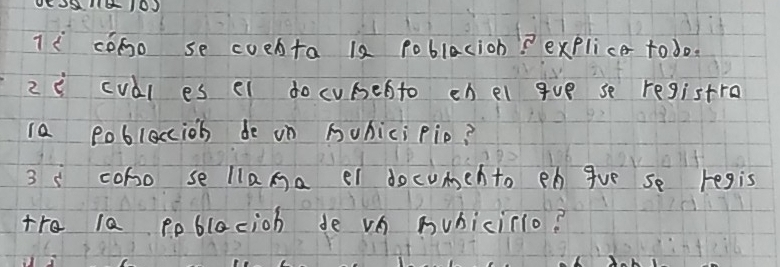 desarrallos
1 ¿ cómo se cuenta la población ? explica todo.
2 ¿ cuál es el documento en el que se registra
la poblacción de un municipio ?
3 ¿ como se llama el documento en que se regis
tra la población de un municirio ?